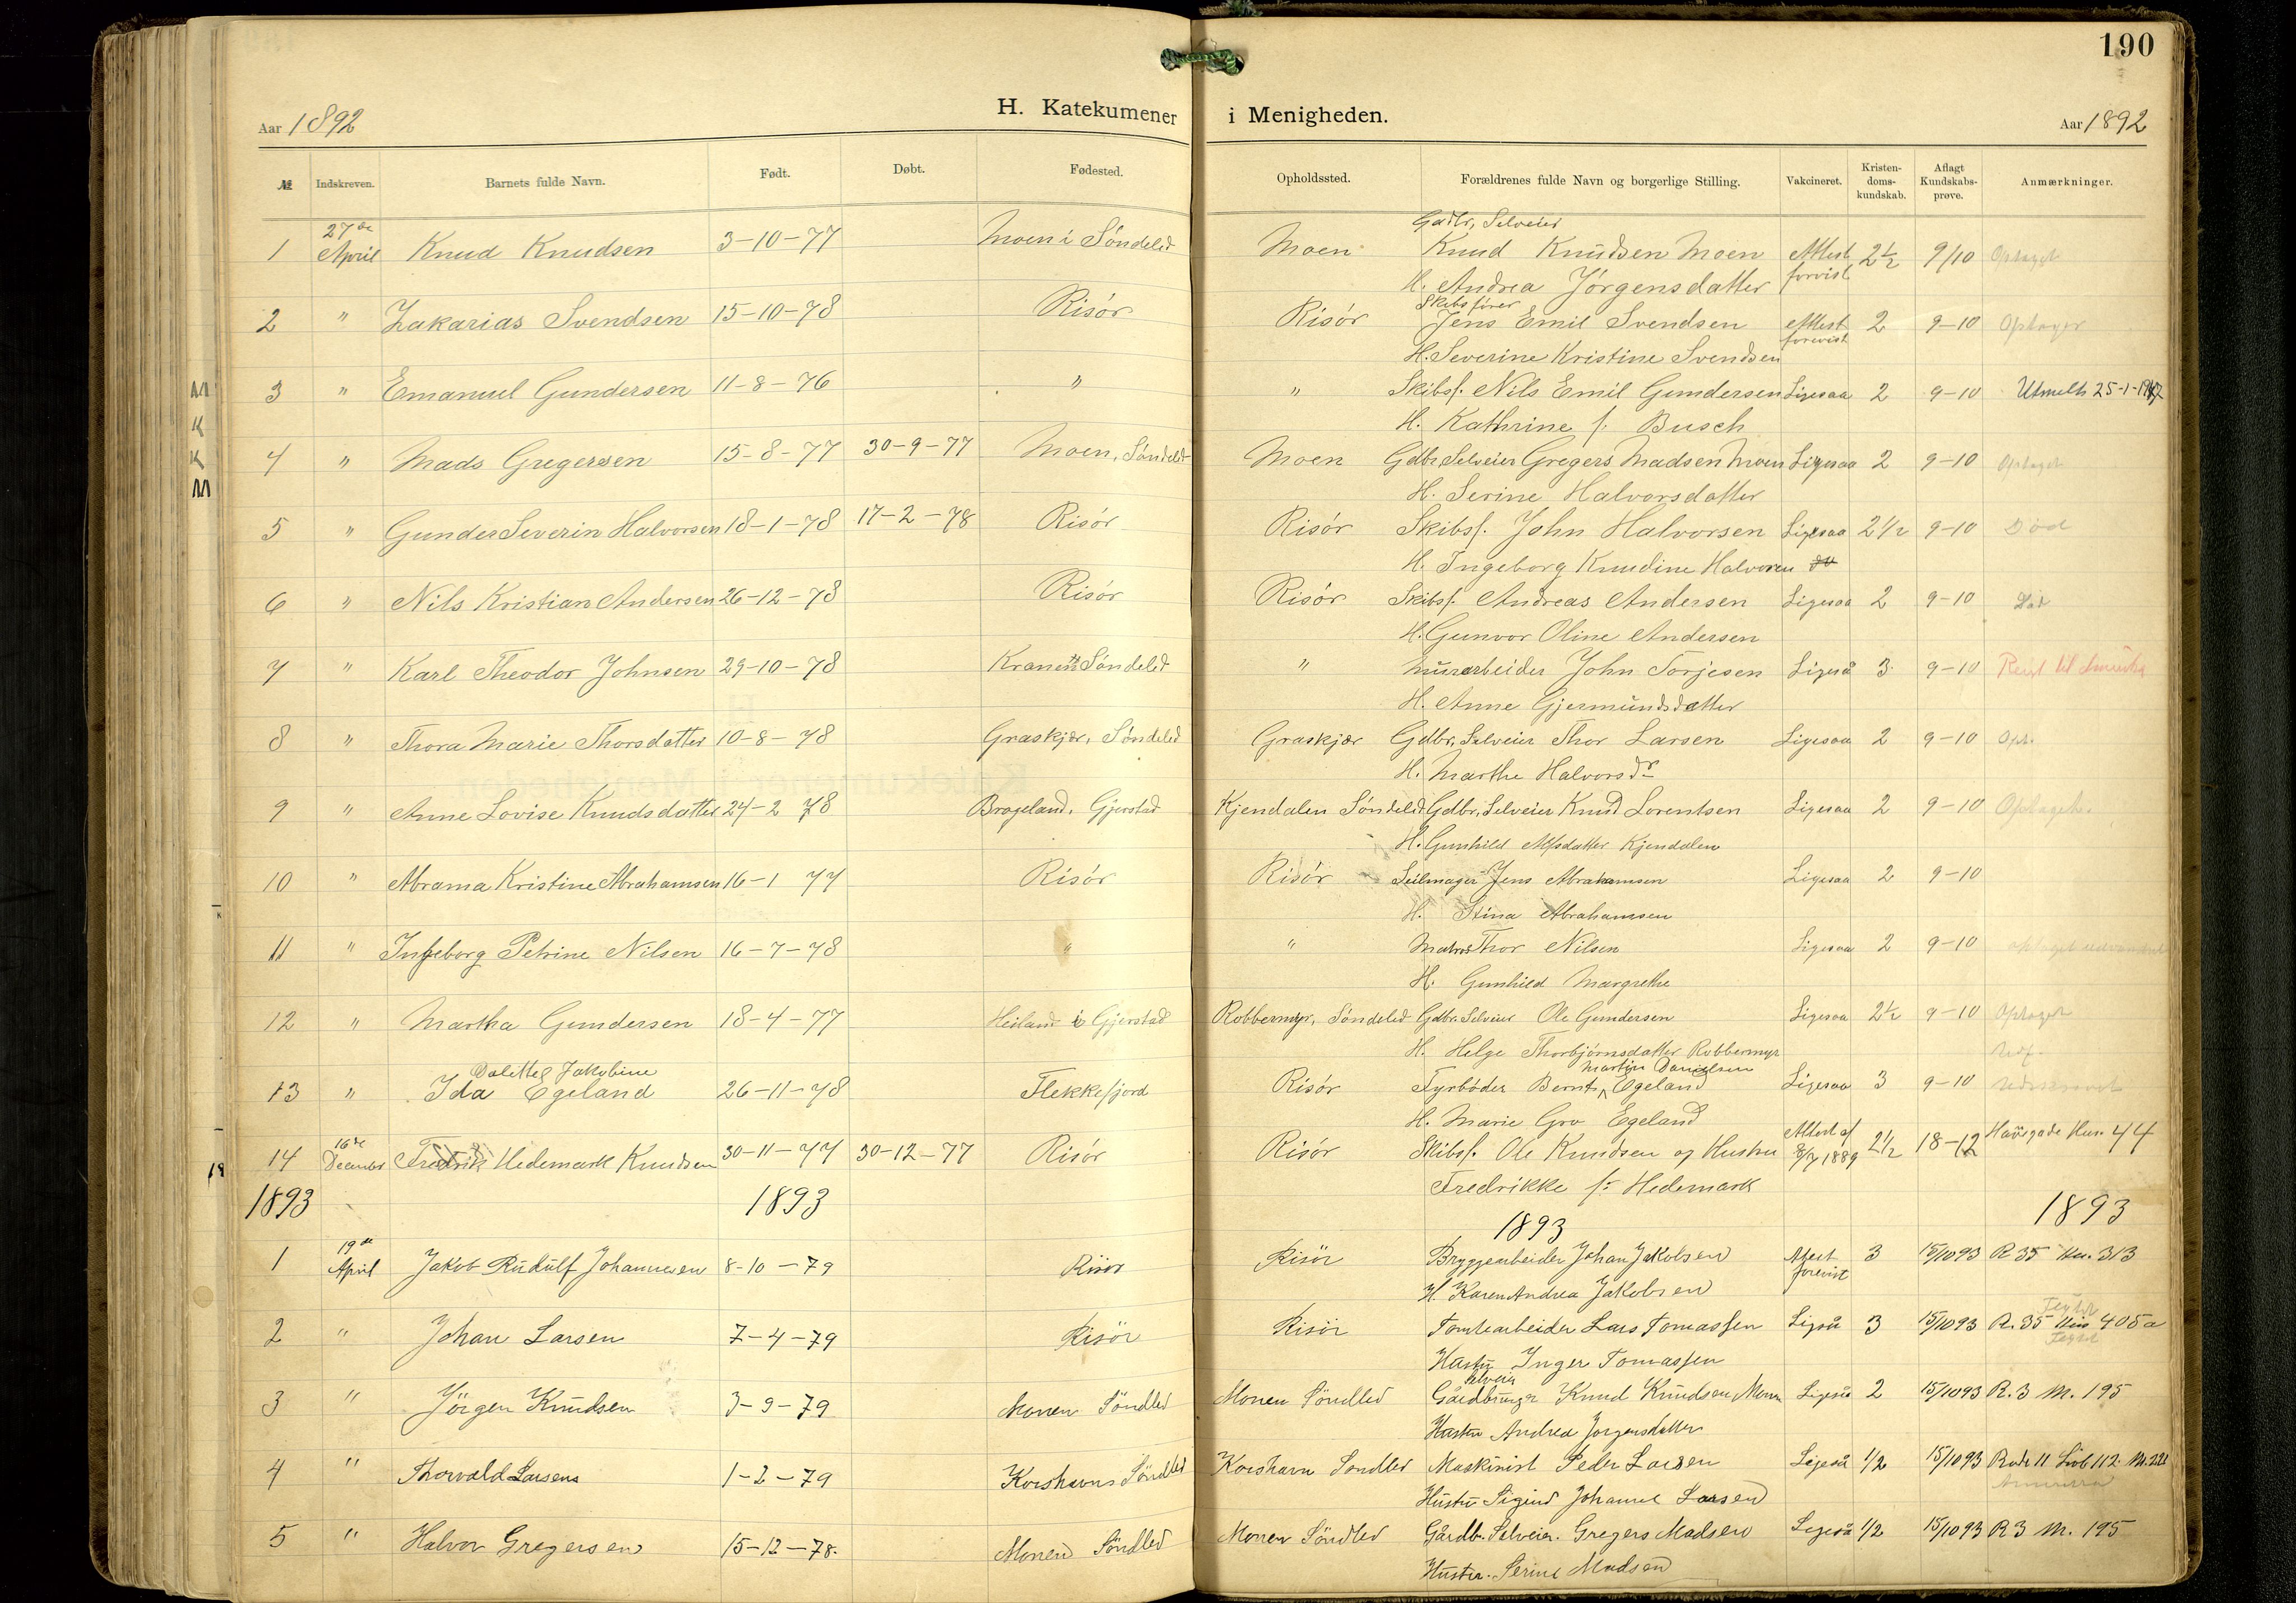 190
H. Katekumener i Menigheden.
Aar 1892 Aar 1892
№ Indskreven. Barnets fulde Navn. Født. Døbt. Fødested. Opholdssted. Forældrenes fulde Navn og borgerlige Stilling. Vakcineret. Kristendoms-kundskab. Aflagt Kundskabs-prøve. Anmærkninger.
27de Gdbr, Selveier
1 April Knud Knudsen 3-10-77 Moen i Søndeled Moen Knud Knudsen Moen Attest forvist 2½ 9/10 Optaget
H. Andrea Jørgensdatter
Skibsfører
2 " Zakarias Svendsen 15-10-78 Risør Risør Jens Emil Svendsen Attest forevist 2 9-10 Optaget
H. Severine Kristine Svendsen
3 " Emanuel Gundersen 11-8-76 " " Skibsf. Nils Emil Gundersen Ligesaa 2 9-10 Utmeldt 25-1-
H. Kathrine f. Busch
4 " Mads Gregersen 15-8-77 30-9-77 Moen, Søndeled Moen Gdbr. Selveier Gregers Madsen Moen Ligesaa 2 9-10 Optaget
H. Serine Halvorsdatter
5 " Gunder Severin Halvorsen 18-1-78 17-2-78 Risør Risør Skibsf. John Halvorsen Ligesaa 2 1/2 9-10 Død
H. Ingeborg Knudine Halvorsen
6 " Nils Kristian Andersen 26-12-78 Risør Risør Skibsf. Andreas Andersen Ligesaa 2 9-10 Død
H. Gunvor Oline Andersen
7 " Karl Theodor Johnsen 29-10-78 Søndeled " Murarbeider John Torjesen Ligeså 3 9-10 Reist til Amerika
H. Anne Gjermundsdatter
8 " Thora Marie Thorsdatter 10-8-78 Graskjær, Søndeled Graskjær Gdbr, Selveier Thor Larsen Ligesaa 2 9-10 Opt.
H. Marthe Halvorsdr
9 " Anne Lovise Knudsdatter 24-2 78 Brogeland, Gjerstad Kjendalen Søndeled Gdbr, Selveier Knud Lorentsen Ligesaa 2 9-10 Optaget.
H. Gunhild Alfsdatter Kjendalen
10 " Abrama Kristine Abrahamsen 16-1 77 Risør Risør Seilmager Jens Abrahamsen Ligesaa 2 9-10
H. Stina Abrahamsen
11 " Ingeborg Petrine Nilsen 16-7-78 " " Matros Thor Nilsen Ligesaa 2 9-10 optaget
H. Gunhild Margrethe
12 " Martha Gundersen 18-4-77 Heiland i Gjerstad Robbermyr, Søndeled Gdbr. Selveier Ole Gundersen Ligesaa 2½ 9-10 Optaget
H. Helge Thorbjørnsdatter Robbermyr
Dalette Jakobine Martin Danielsen
13 " Ida Egeland 26-11-78 Flekkefjord Risør Fyrbøder Bernt Egeland Ligesaa 3 9-10
H. Marie Gro Egeland
16de
14 December Fredrik Hedemark Knudsen 30-11-77 30-12-77 Risør Risør Skibsf. Ole Knudsen og Hustru Attest af 8/7 1889 2½ 18-12 Havegade Hus. 44
Fredrikke f. Hedemark
1893 1893 1893 1893
19de
1 April Jakob Rudulf Johannesen 8-10-79 Risør Risör Bryggearbeider Johan Jakobsen Atest forevist 3 15/10 93 R 35 Hu. 313
H. Karen Andrea Jakobsen
2 " Johan Larsen 7-4-79 Risör Risör Tomtearbeider Lars Tomassen Ligså 3 15/10 93 R. 35 Hus 405a
Hustru Inger Tomassen
Selveier
3 " Jörgen Knudsen 3-9-79 Monen Söndled Monen Söndled Gårdbruger Knud Knudsen Monen Ligeså 2 15/10 93 R. 3 M. 195
Hustru Andrea Jørgensdatter
4 " Thorvald Larsens 1-2-79 Korshavns Söndled Korshavn Söndled Maskinist Peder Larsen Ligeså 1/2 15/10 93 Rode 11
Hustru Johanne Larsen
5 " Halvor Gregersen 15-12-78. Monen Söndled Monen Söndled Gårdb. Selveier. Gregers Madsen Ligeså 1/2 15/10 93 R 3 M. 195
Hustru. Serine Madsen